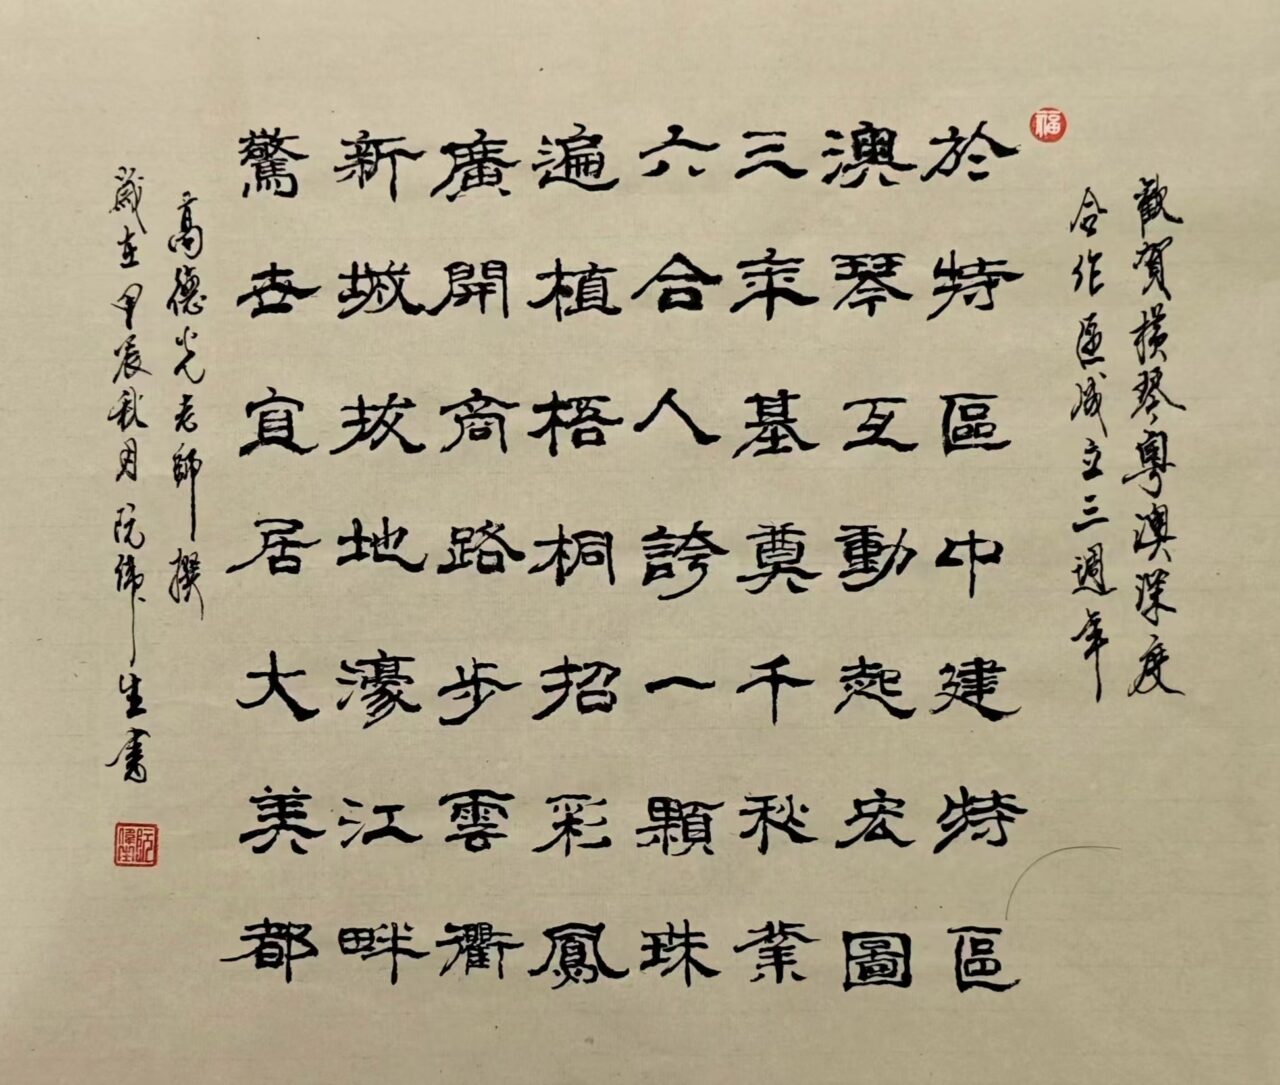 歡賀橫琴粵澳深度
合作區成立三週年
福
於特區中建特區
澳琴互動起宏圖
三年基奠千秋業
六合人誇一顆珠
遍植梧桐招彩鳳
廣開商路步雲衢
新城拔地濠江畔
驚世宜居大美都
高德光老師撰
歲在甲辰秋月阮偉生書
阮偉生